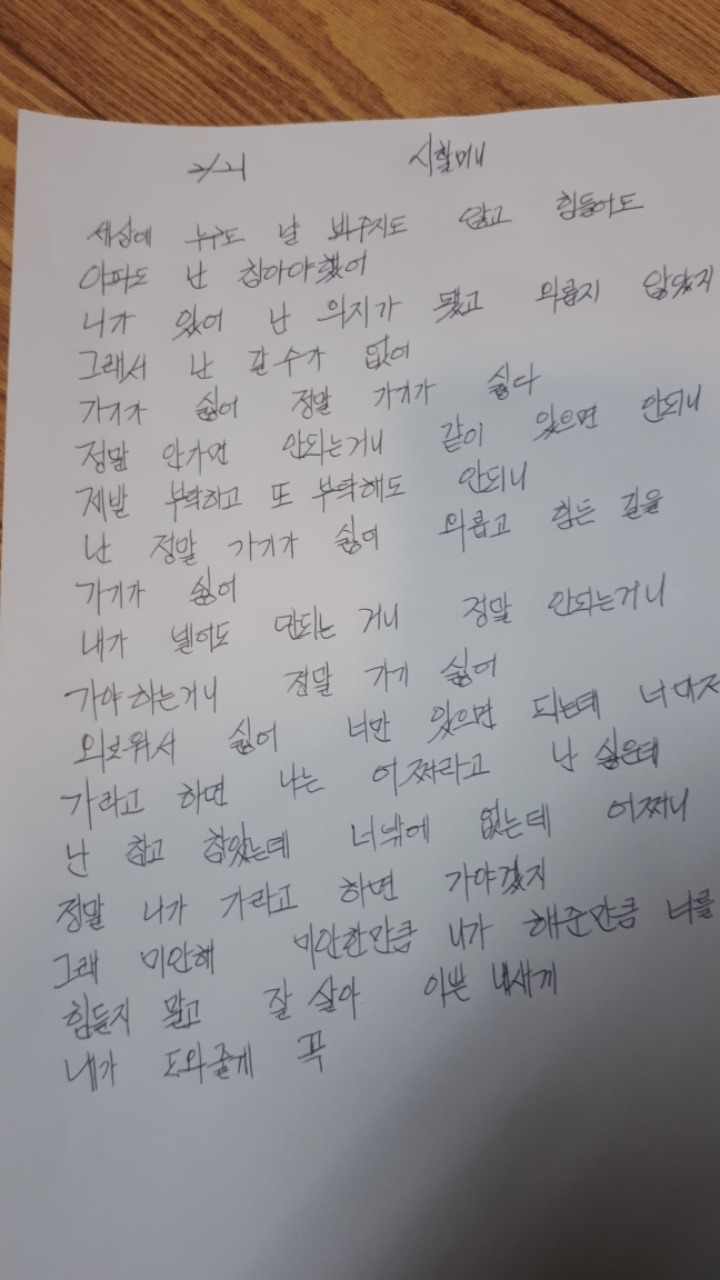 2/21 시할머니
세상에 누구도 날 봐주지도 않고 힘들어도
아파도 난 참아야했어
니가 있어 난 의지가 됐고 외롭지 않았지
그래서 난 갈수가 없어
가기가 싫어 정말 가기가 싫다
정말 안가면 안되는거니 같이 있으면 안되니
제발 부탁하고 또 부탁해도 안되니
난 정말 가기가 싫어 외롭고 힘든 길을
가기가 싫어
내가 빌어도 안되는 거니 정말 안되는거니
가야 하는거니 정말 가기 싫어
외로워서 싫어 너만 있으면 되는데 너마저
가라고 하면 나는 어쩌라고 난 싫은데
난 참고 참았는데 너밖에 없는데 어쩌니
정말 니가 가라고 하면 가야겠지
그래 미안해 미안한만큼 니가 해준만큼 너를
힘들지 말고 잘 살아 이쁜
내가 도와줄게 꼭